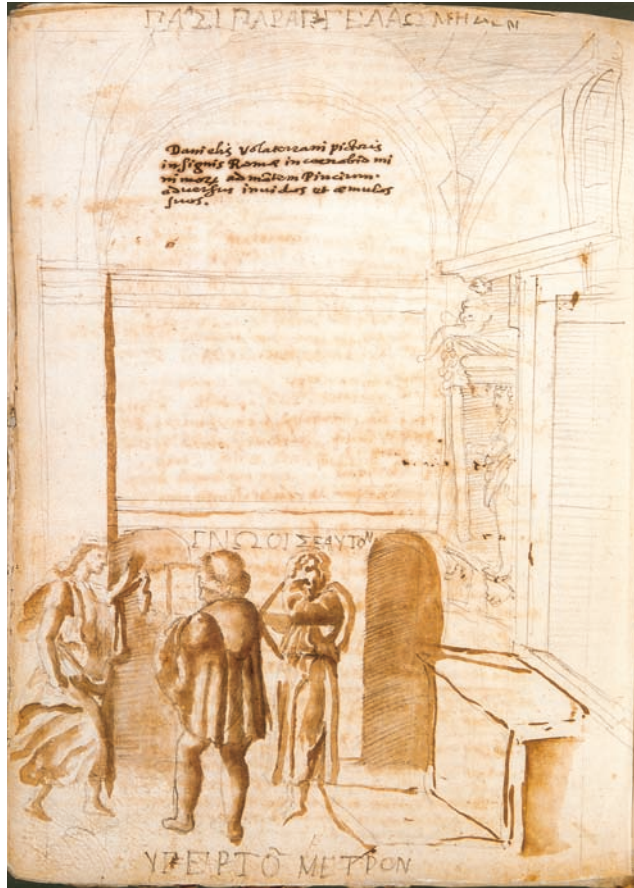 ΠΑΣΙ ΠΑΡΑΓΓΕΛΛΩ ΜΗΔΕΝ
Danielis Volaterrani pictoris
insignis Romæ in coenobio mi
nimorꝫ ad mõtem Pincium
adversus invidos et æmulos
suos.
ΓΝΩΘΙ ΣΕΑΥΤΟΝ
ΥΠΕΡ ΤΟ ΜΕΤΡΟΝ